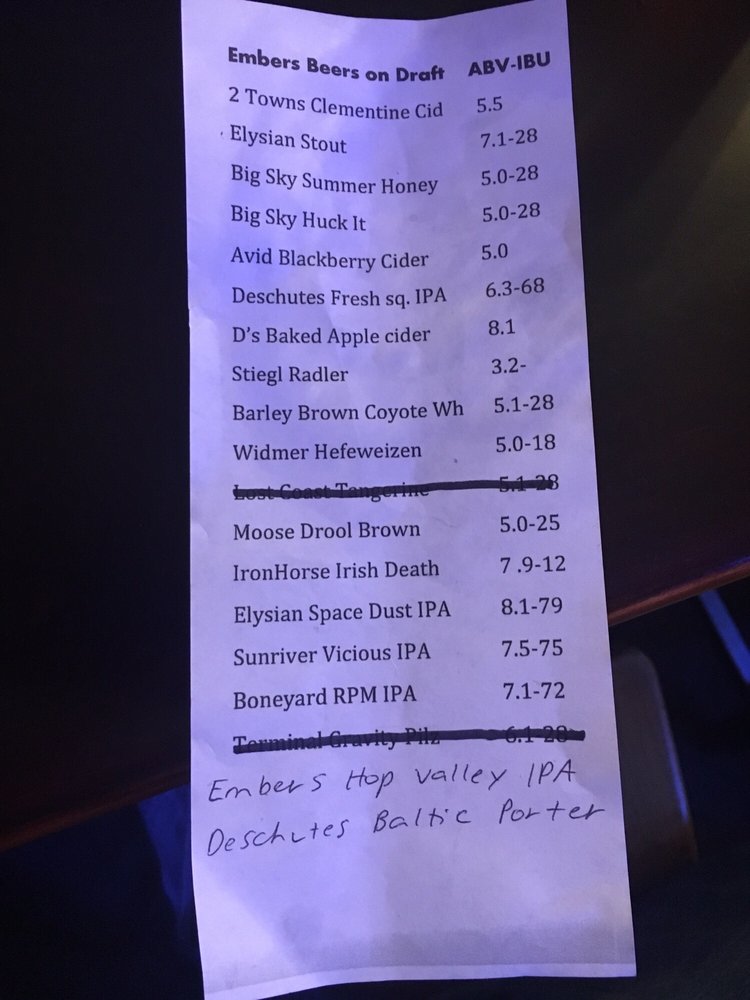 Embers Beers on Draft ABV-IBU
2 Towns Clementine Cid 5.5
Elysian Stout 7.1-28
Big Sky Summer Honey 5.0-28
Big Sky Huck It 5.0-28
Avid Blackberry Cider 5.0
Deschutes Fresh sq. IPA 6.3-68
D's Baked Apple cider 8.1
Stiegl Radler 3.2-
Barley Brown Coyote Wh 5.1-28
Widmer Hefeweizen 5.0-18
Lost Coast Tangerine 5.1-28
Moose Drool Brown 5.0-25
IronHorse Irish Death 7 .9-12
Elysian Space Dust IPA 8.1-79
Sunriver Vicious IPA 7.5-75
Boneyard RPM IPA 7.1-72
Terminal Gravity Pilz 6.1-28
Embers Hop Valley IPA
Deschutes Baltic Porter